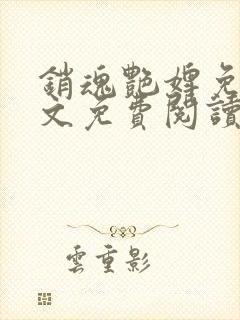 銷魂艷婢免
文免費閱讀
雲重影